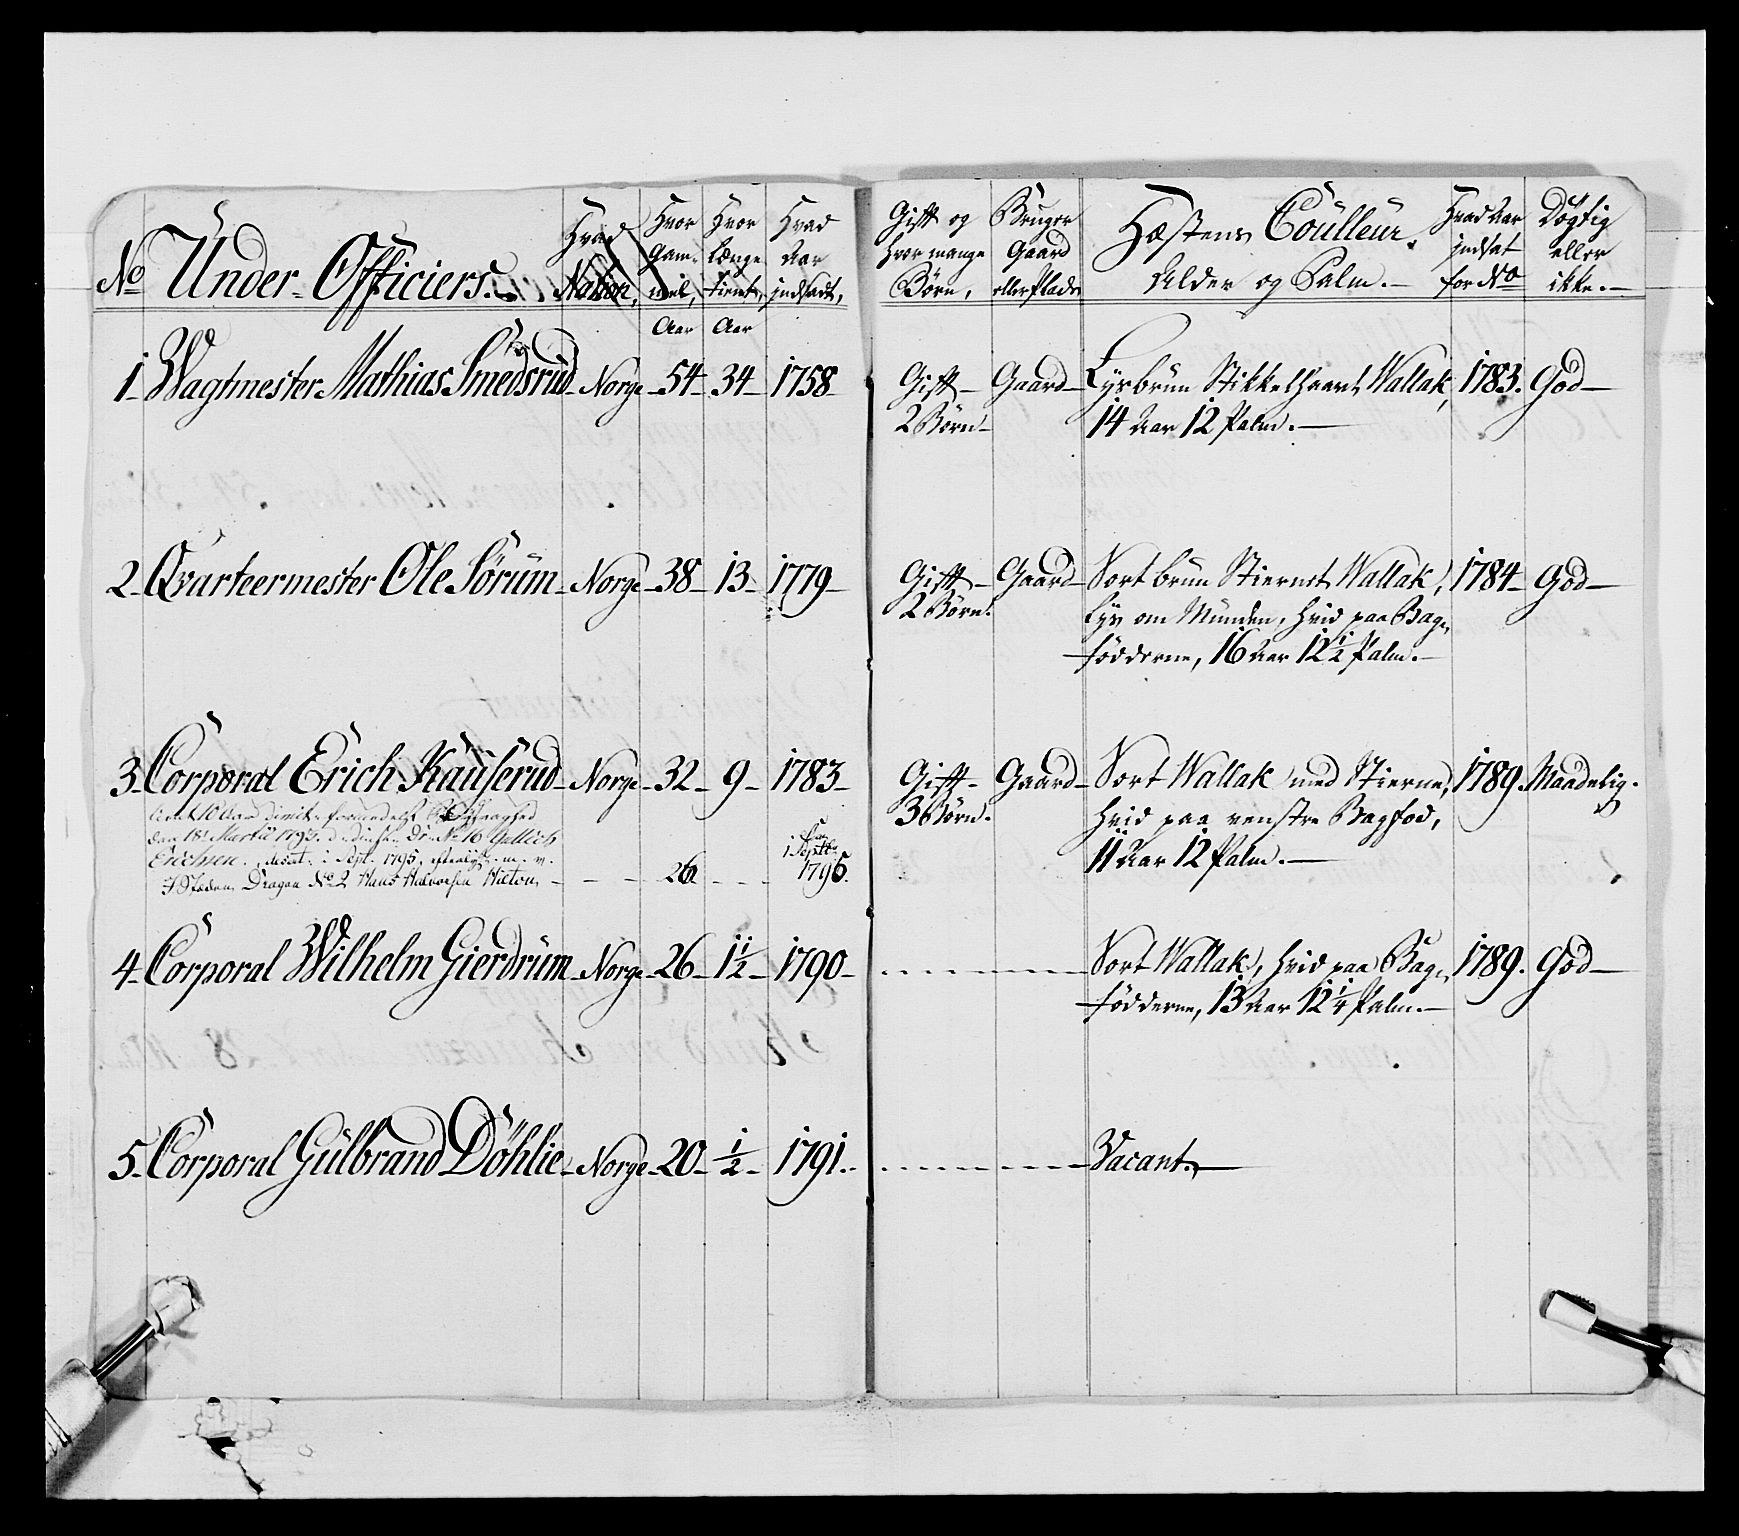 No Under-Officiers. Hvad Nation, Hvor Gammel, Hvor Længe tient, Hvad Aar indsadt, Gift og hvor mange Børn, Bruger Gaard eller Plads Hæstens Coulleur. Alder og Palm.- Hvad Aar indsat for No Dögtig eller ikke.-
Aar Aar
1. Wagtmester Mathias Smedsrud Norge 54 34 1758 Gift- Gaard Lysbrun Stikkelhaaret Wallak, 1783. God
2 Børn 14 Aar 12 Palm.
2. Qvarteermester Ole Sørum Norge 38 13 1779 Gift Gaard Sort brun Stiernet Wallak, 1784 God
2 Børn. Lys om Munden, hvid paa Bag-
födderne, 16 Aar 12 1/2 Palm.
3. Corporal Erich Kauserud Norge 32 9 1783 Gift Gaard Sort Wallak med Stierne, 1789. Maadelig.
3 Børn. hvid paa venstre Bagfod,
11 Aar 12 Palm.
den 18 Martii 1795. No 16 Gullich
Erichsen, desert. i Sept. 1795,
I Steden Dragon No 2 Hans Halvorsen 26 1 Septbr 1795.
4. Corporal Wilhelm Gierdrum Norge 26 1 1/2 1790 Sort Wallak, hvid paa Bag- 1789. God
födderne, 13 Aar 12 1/4 Palm.
5. Corporal Gulbrand Döhlie Norge 20 1/2 1791. Vacant.